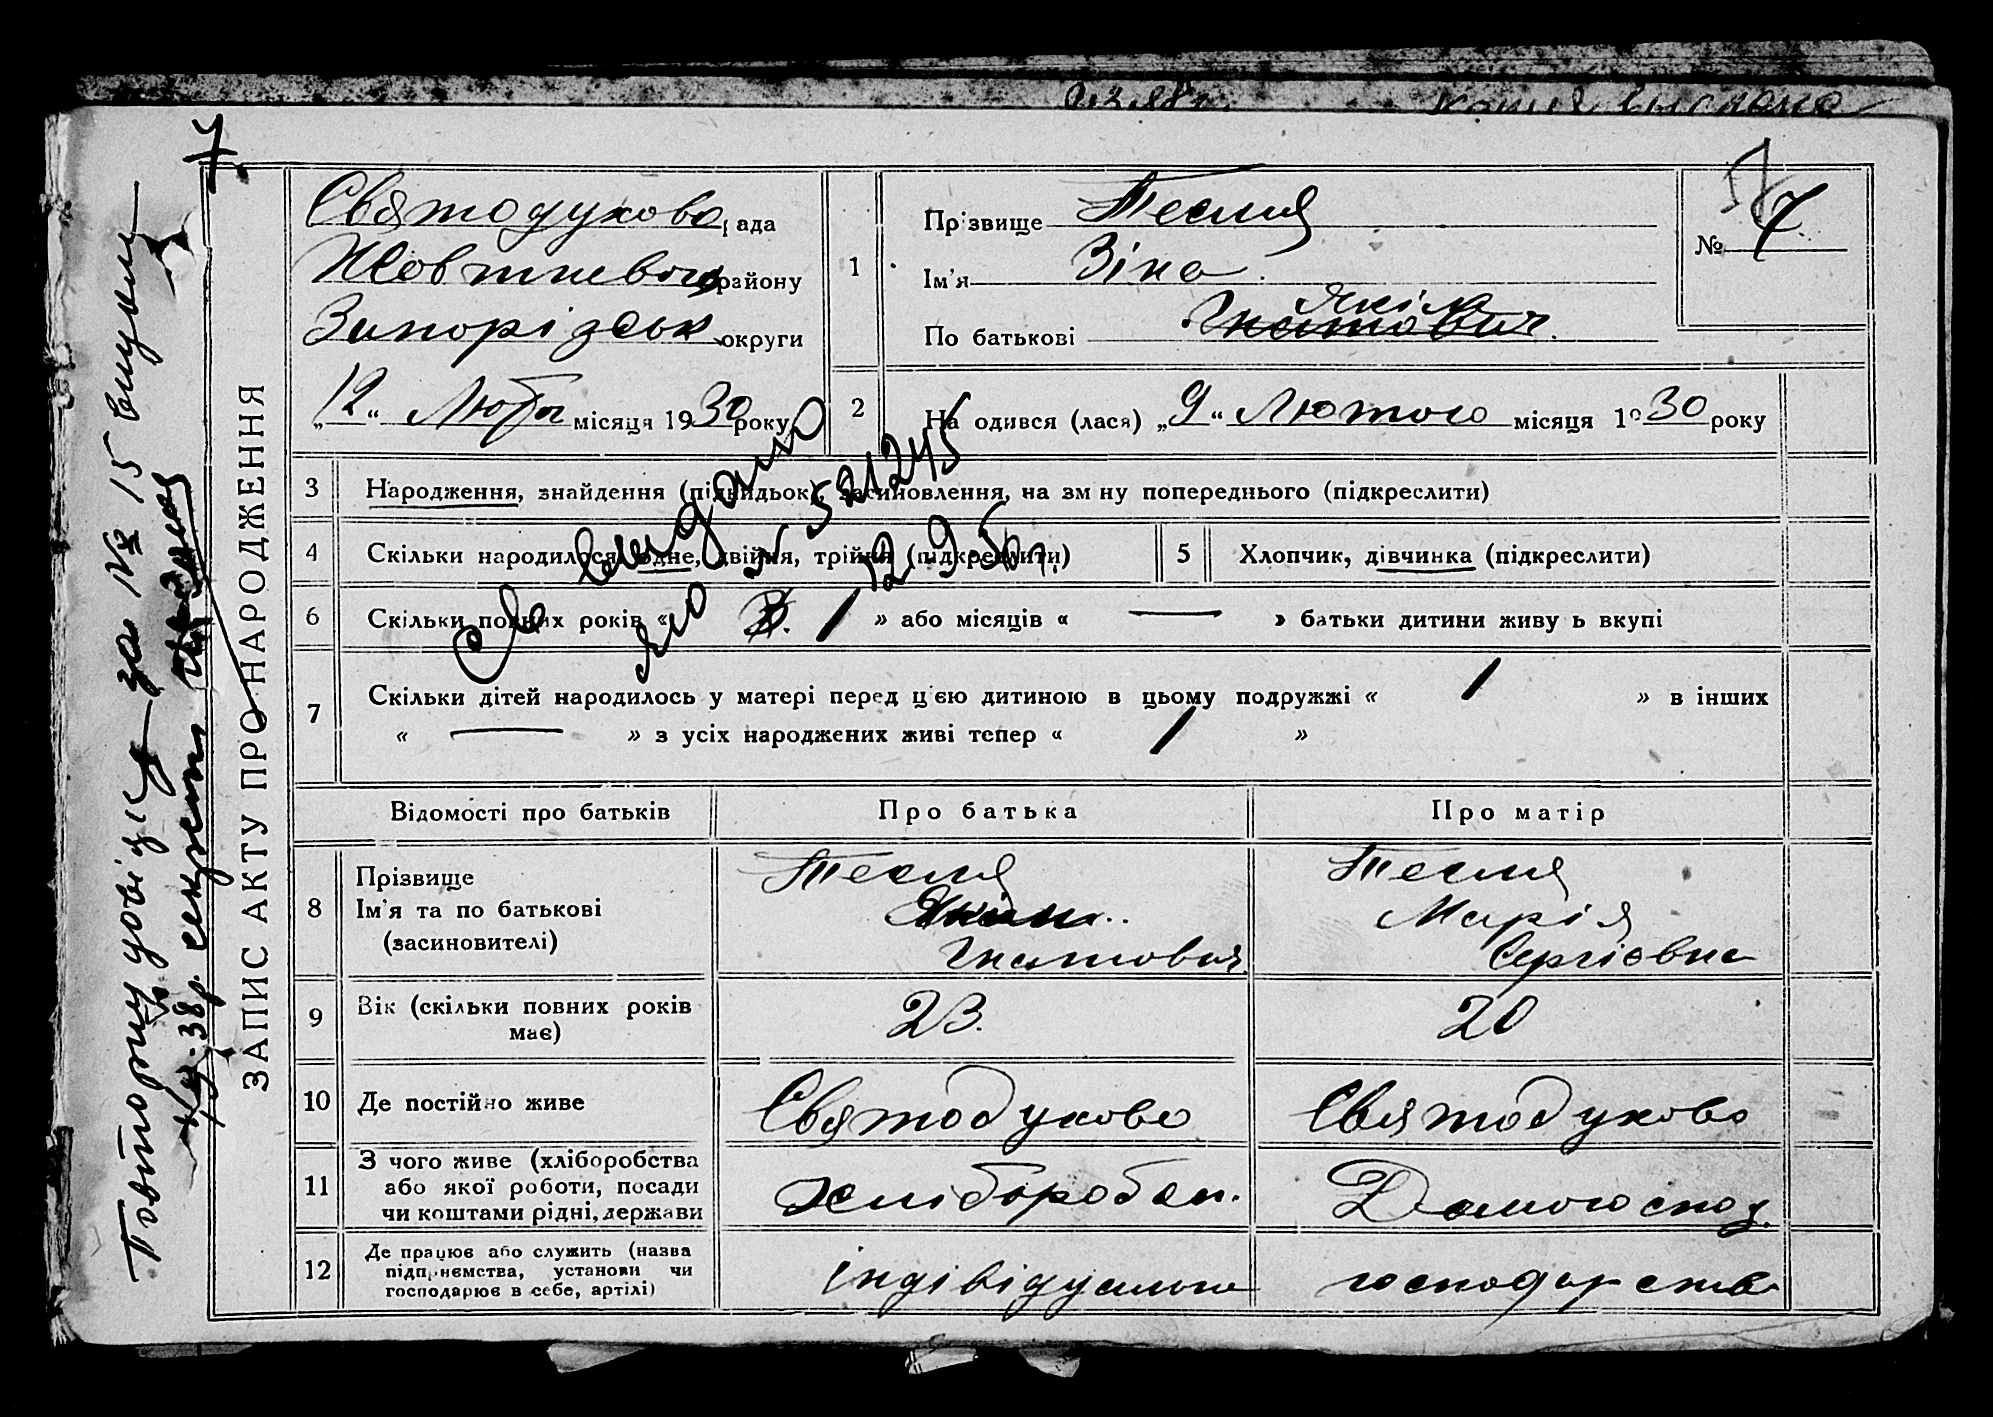 копия выслана
7
Святодухово рада
Жовтневого району
Запорізськ округи
„12“ Лютого місяця 1930 року
1
Прізвище Тесля
Ім'я Зіна
Якім
По батькові Гнатович.
№ 7
2
Народився (лася) „9“ Лютого місяця 1930 року
3 Народження, знайдення (підкидьок), засиновлення, на зміну попереднього (підкреслити)
4 Скільки народилося, одне, двійня, трійня (підкреслити)
5 Хлопчик, дівчинка (підкреслити)
6 Скільки повних років « 1 » або місяців « — » батьки дитини живуть вкупі
7 Скільки дітей народилось у матері перед цією дитиною в цьому подружжі « 1 » в інших
« — » з усіх народжених живі тепер « 1 »
Св выдано
яю № 521245
12.9.56г.
Відомості про батьків
Про батька
Про матір
8 Прізвище
Ім'я та по батькові
(засиновителі)
Тесля
Якім
Гнатович
Тесля
Марія
Сергієвна
9 Вік (скільки повних років має)
23.
20
10 Де постійно живе
Святодухово
Святодухово
11 З чого живе (хліборобства
або якої роботи, посади
чи коштами рідні, держави
хлібороб
Домогоспод.
12 Де працює або служить (назва
підприємства, установи чи
господарює в себе, артілі)
індівідуальне
господарство
ЗАПИС АКТУ ПРО НАРОДЖЕННЯ
за № 15